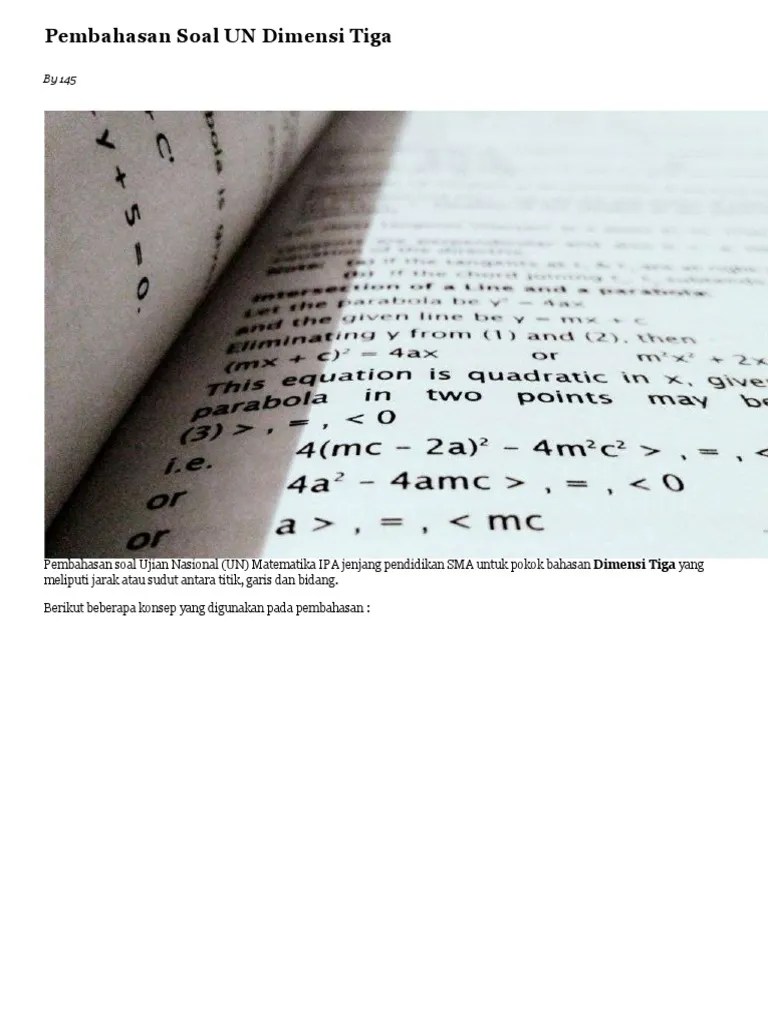 Pembahasan Soal UN Dimensi Tiga
By 145
y + 5 = 0.
Intersection of a Line and a parabola:
Let the parabola be y² = 4ax
and the given line be y = mx + c
Eliminating y from (1) and (2), then
(mx + c)² = 4ax or m²x² + 2x
This equation is quadratic in x, give
parabola in two points may be
(3) > , = , < 0
i.e. 4(mc – 2a)² – 4m²c² > , = , <
or 4a² – 4amc > , = , < 0
or a > , = , < mc
Pembahasan soal Ujian Nasional (UN) Matematika IPA jenjang pendidikan SMA untuk pokok bahasan Dimensi Tiga yang
meliputi jarak atau sudut antara titik, garis dan bidang.
Berikut beberapa konsep yang digunakan pada pembahasan :